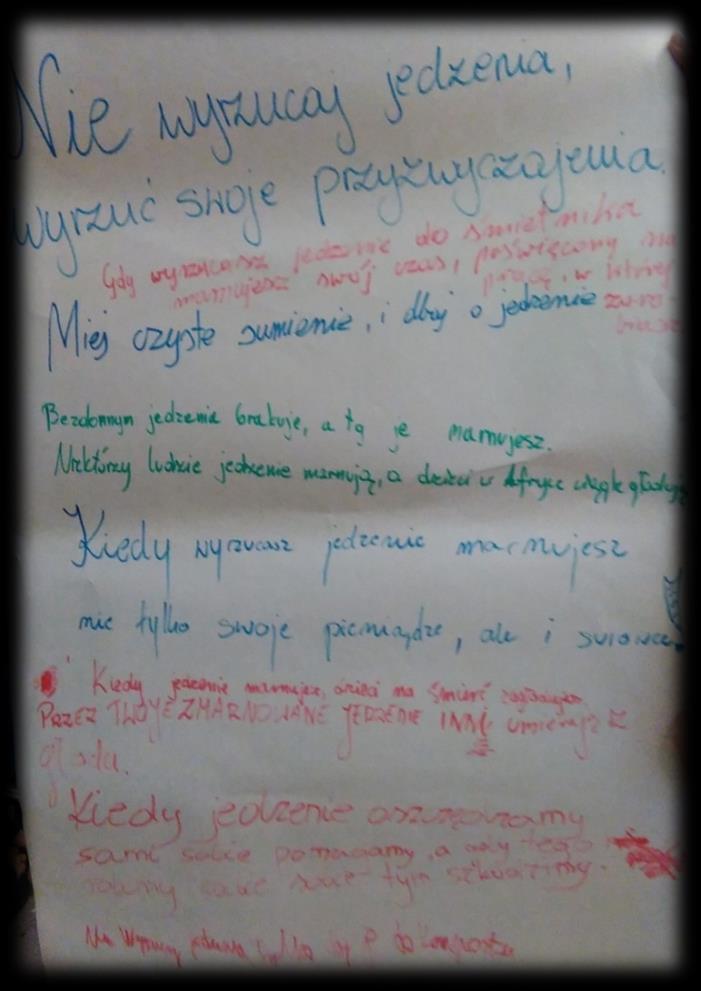 Nie wyrzucaj jedzenia,
wyrzuć swoje przyzwyczajenia.
Gdy wyrzucasz jedzenie do śmietnika
marnujesz swój czas, poświęcony na
pracę, w której
zaro-
biasz
Miej czyste sumienie, i dbaj o jedzenie
Bezdomnym jedzenia brakuje, a ty je marnujesz.
Niektórzy ludzie jedzenie marnują, a dzieci w Afryce ciągle głodują
Kiedy wyrzucasz jedzenie marnujesz
nie tylko swoje pieniądze, ale i surowce.
Kiedy jedzenie marnujesz, dzieci na śmierć
PRZEZ TWOJE ZMARNOWANE JEDZENIE INNI umierają z
głodu.
Kiedy jedzenie oszczędzamy
sami sobie pomagamy, a gdy tego
robimy sobie tym szkodzimy.
jedzenia do kompostu